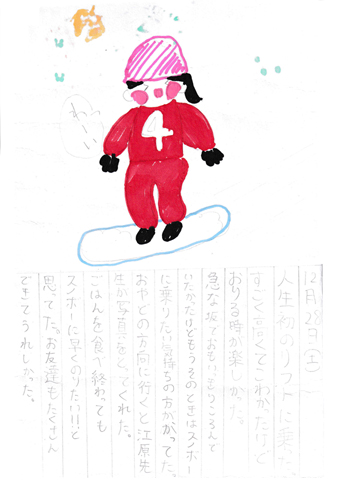 わーい
4
12月28日(土)
人生初のリフトに乗った。
すごく高くてこわかったけど
おりる時が楽しかった。
急な坂でおもいっきりころんで
いたかったけどもうそのときはスノボー
に乗りたい気持ちの方がかってた。
おやどの方向に行くと江原先
生が写真をとってくれた。
ごはんを食べ終わっても
スノボーに早くのりたい!!と
思てた。お友達もたくさん
できてうれしかった。